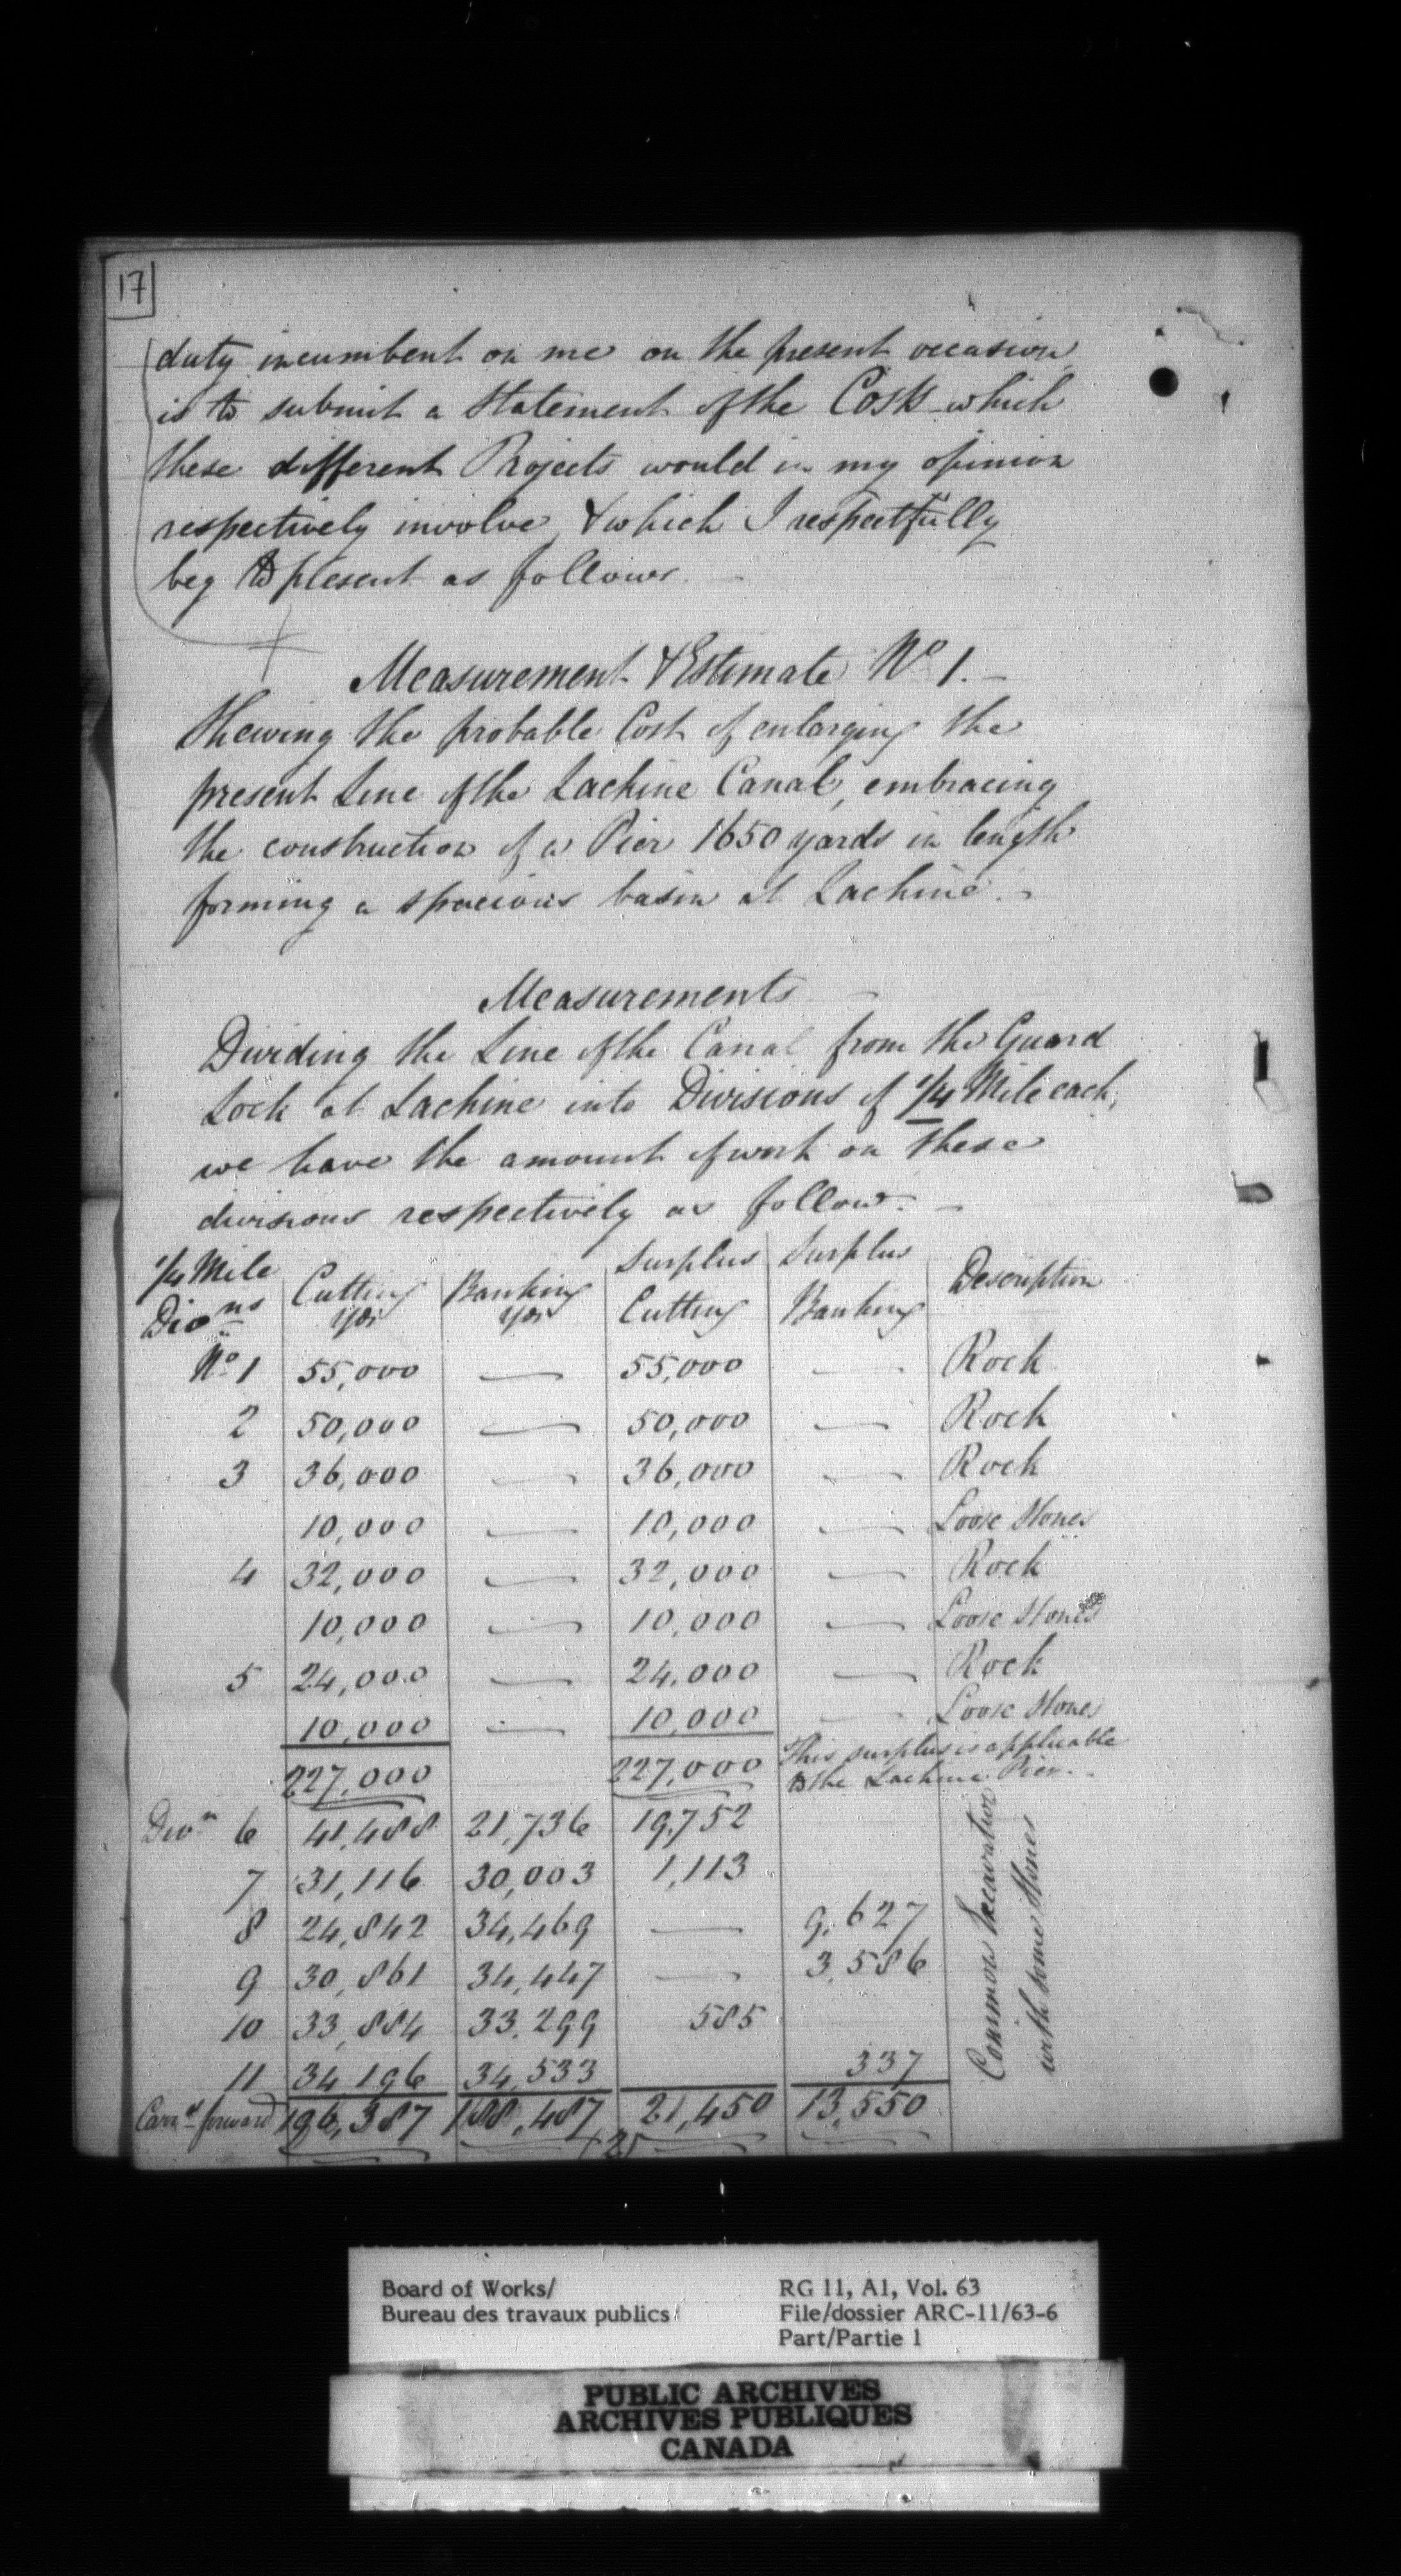 17
duty incumbent on me on the present occasion
is to submit a Statement of the Costs which
these different Projects would in my opinion
respectively involve, & which I respectfully
beg to present as follows. —
Measurement & Estimate No 1. —
Shewing the probable Cost of enlarging the
present Line of the Lachine Canal, embracing
the construction of a Pier 1650 yards in length
forming a spacious basin at Lachine. —
Measurements —
Dividing the Line of the Canal from the Guard
Lock at Lachine into Divisions of 1/4 Mile each,
we have the amount of work on these
divisions respectively as follow. —
1/4 Mile Divns | Cutting yds | Banking yds | Surplus Cutting | Surplus Banking | Description
No 1 55,000 — 55,000 — Rock
2 50,000 — 50,000 — Rock
3 36,000 — 36,000 — Rock
10,000 — 10,000 — Loose Stones
4 32,000 — 32,000 — Rock
10,000 — 10,000 — Loose Stones
5 24,000 — 24,000 — Rock
10,000 — 10,000 — Loose Stones
227,000 227,000 This surplus is applicable
to the Lachine Pier. —
Divn 6 41,488 21,736 19,752
7 31,116 30,003 1,113
8 24,842 34,469 — 9,627
9 30,861 34,447 — 3,586
10 33,884 33,299 585
11 34,196 34,533 337
Carrd forward 196,387 188,487 21,450 13,550
Common Excavation
with some Stones
Board of Works/
Bureau des travaux publics
RG 11, A1, Vol. 63
File/dossier ARC-11/63-6
Part/Partie 1
PUBLIC ARCHIVES
ARCHIVES PUBLIQUES
CANADA